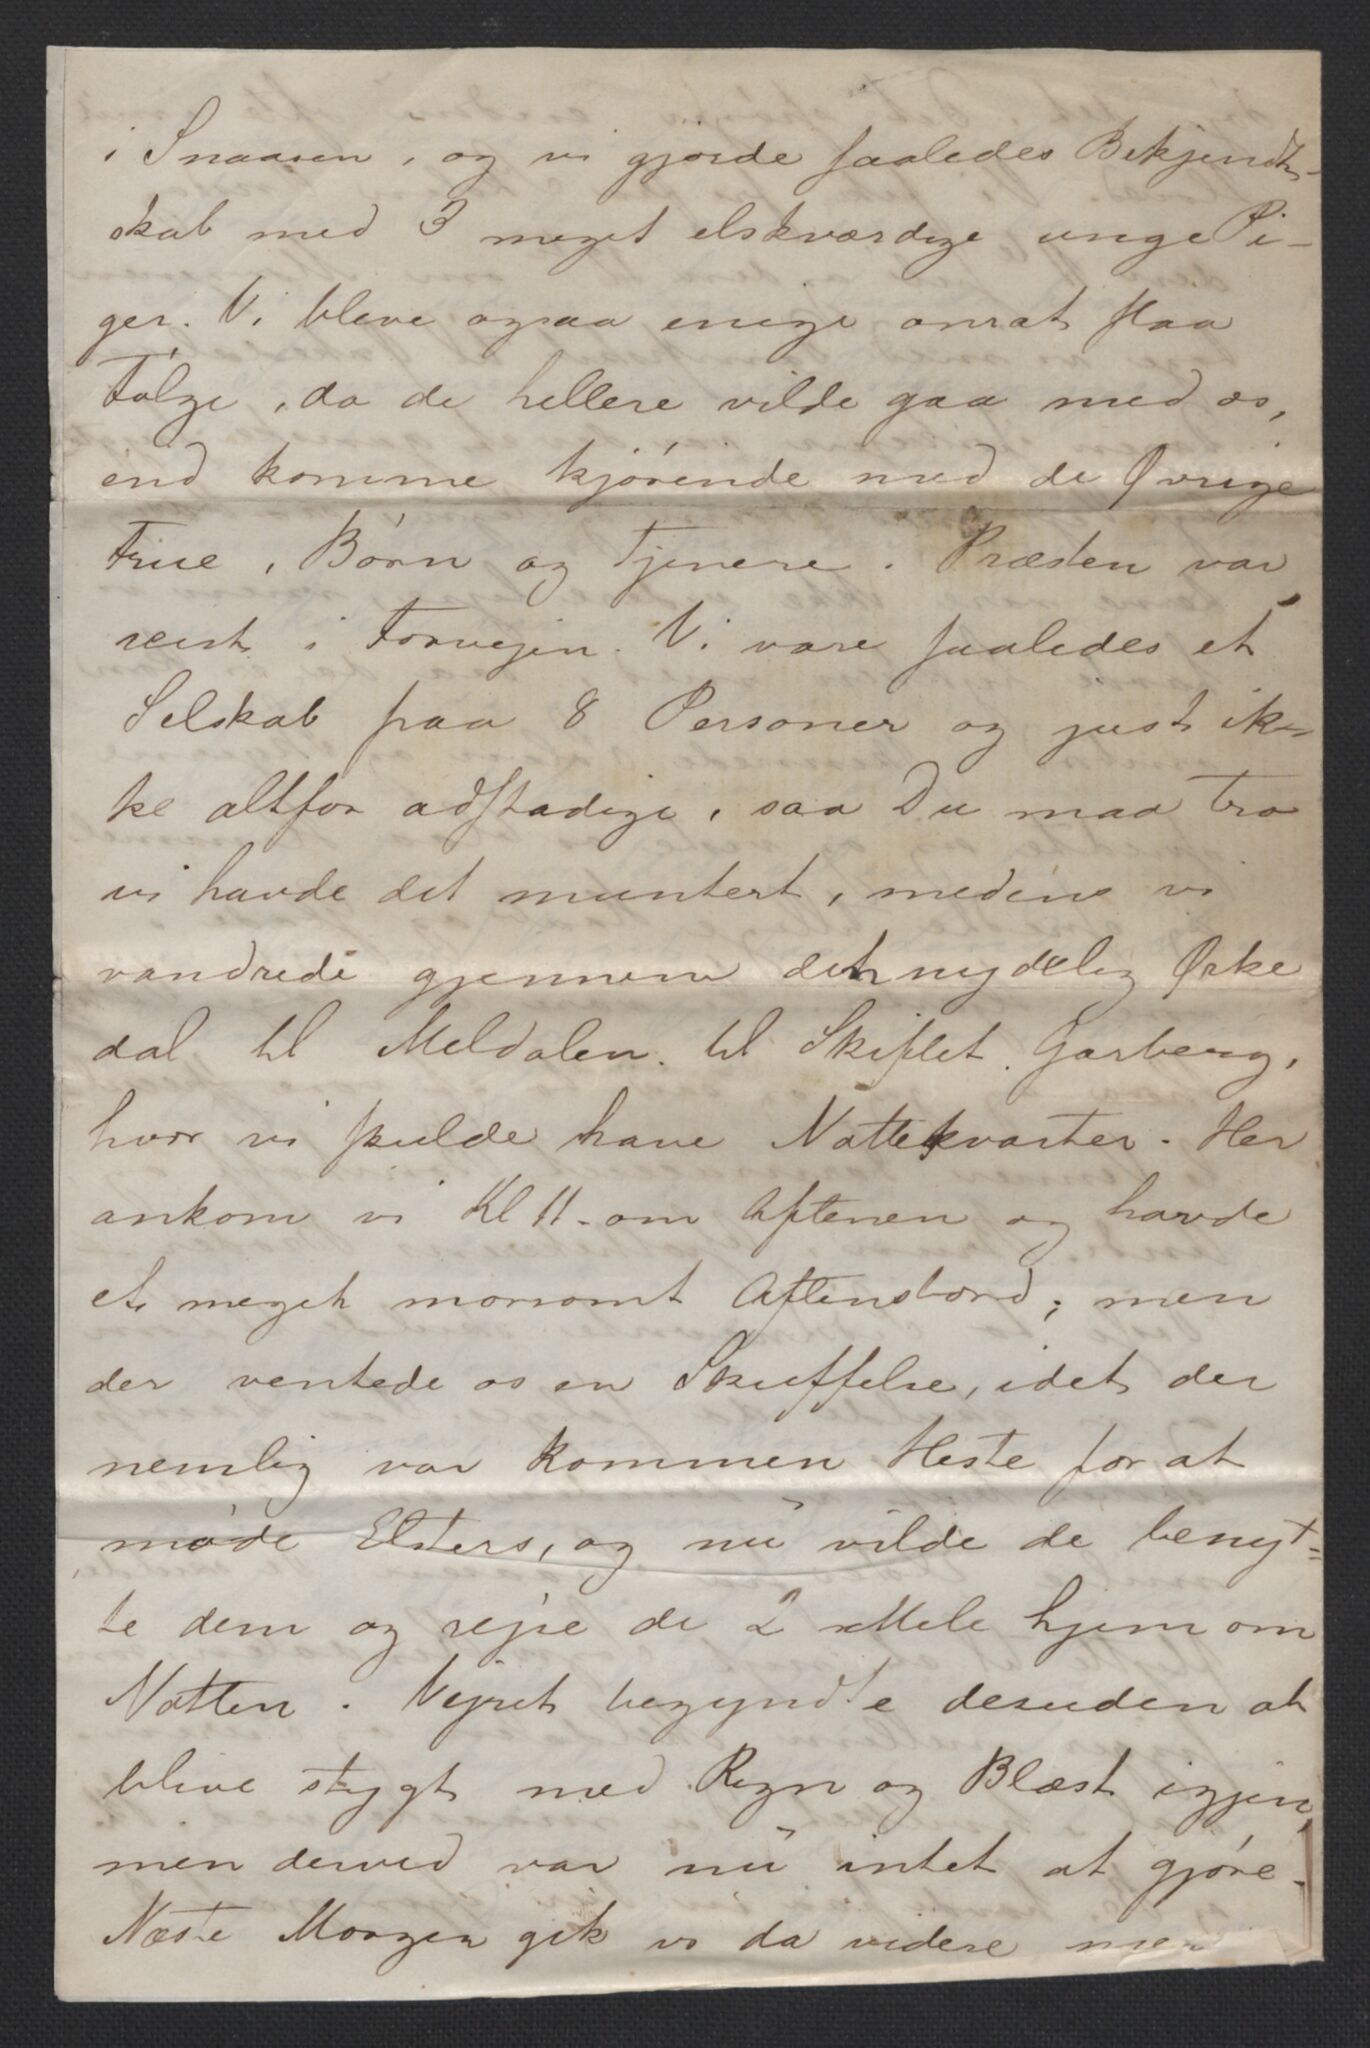 i Snaasen, og vi gjorde saaledes Bekjendt-
skab med 3 meget elskværdige unge Pi-
ger. Vi bleve ogsaa enige om at slaa
Følge, da de hellere vilde gaa med os,
end komme kjörende med de Øvrige
Frue, Børn og Tjenere. Præsten var
reist i Forvejen. Vi vare saaledes et
Selskab paa 8 Personer og just ik-
ke altfor adstadige, saa Du maa tro
vi havde det muntert, medens vi
vandrede gjennem det nydelig Ørke
dal til Meldalen. til Skiftet. Garberg,
hvor vi skulde have Nattekvarter. Her
ankom vi Kl 11 om Aftenen og havde
et meget morsomt Aftensbord; men
der ventede os en Skuffelse, idet der
nemlig var kommen Heste for at
møde Elsters, og nu vilde de benyt-
te dem og rejse de 2 Mile hjem om
Natten. Vejret begyndte desuden at
blive stygt med Regn og Blæst igjen,
men derved var nu intet at gjöre.
Næste Morgen gik vi da videre men